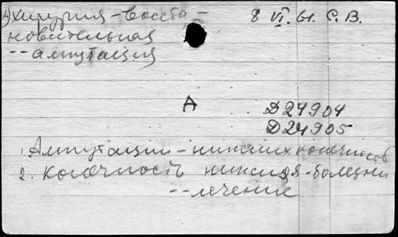 А) Хирургия - восста-
новительная
-- ампутация
8 VI 61. С. В.
А
D24904
D24905
1. Ампутации - нижних конечностей
2. Конечность нижняя - болезни
-- лечение